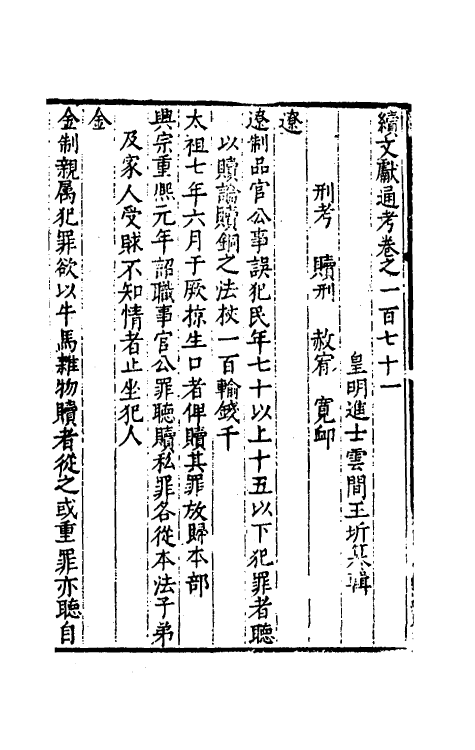 續文獻通考卷之一百七十一
皇明進士雲間王圻纂輯
刑考　贖刑　赦宥　寬卹
遼
遼制品官公事誤犯民年七十以上十五以下犯罪者聽
以贖論贖銅之法杖一百輸錢千
太祖七年六月于厥掠生口者俾贖其罪放歸本部
興宗重熙元年詔職事官公罪聽贖私罪各從本法子弟
及家人受賕不知情者止坐犯人
金
金制親属犯罪欲以牛馬雜物贖者從之或重罪亦聽自